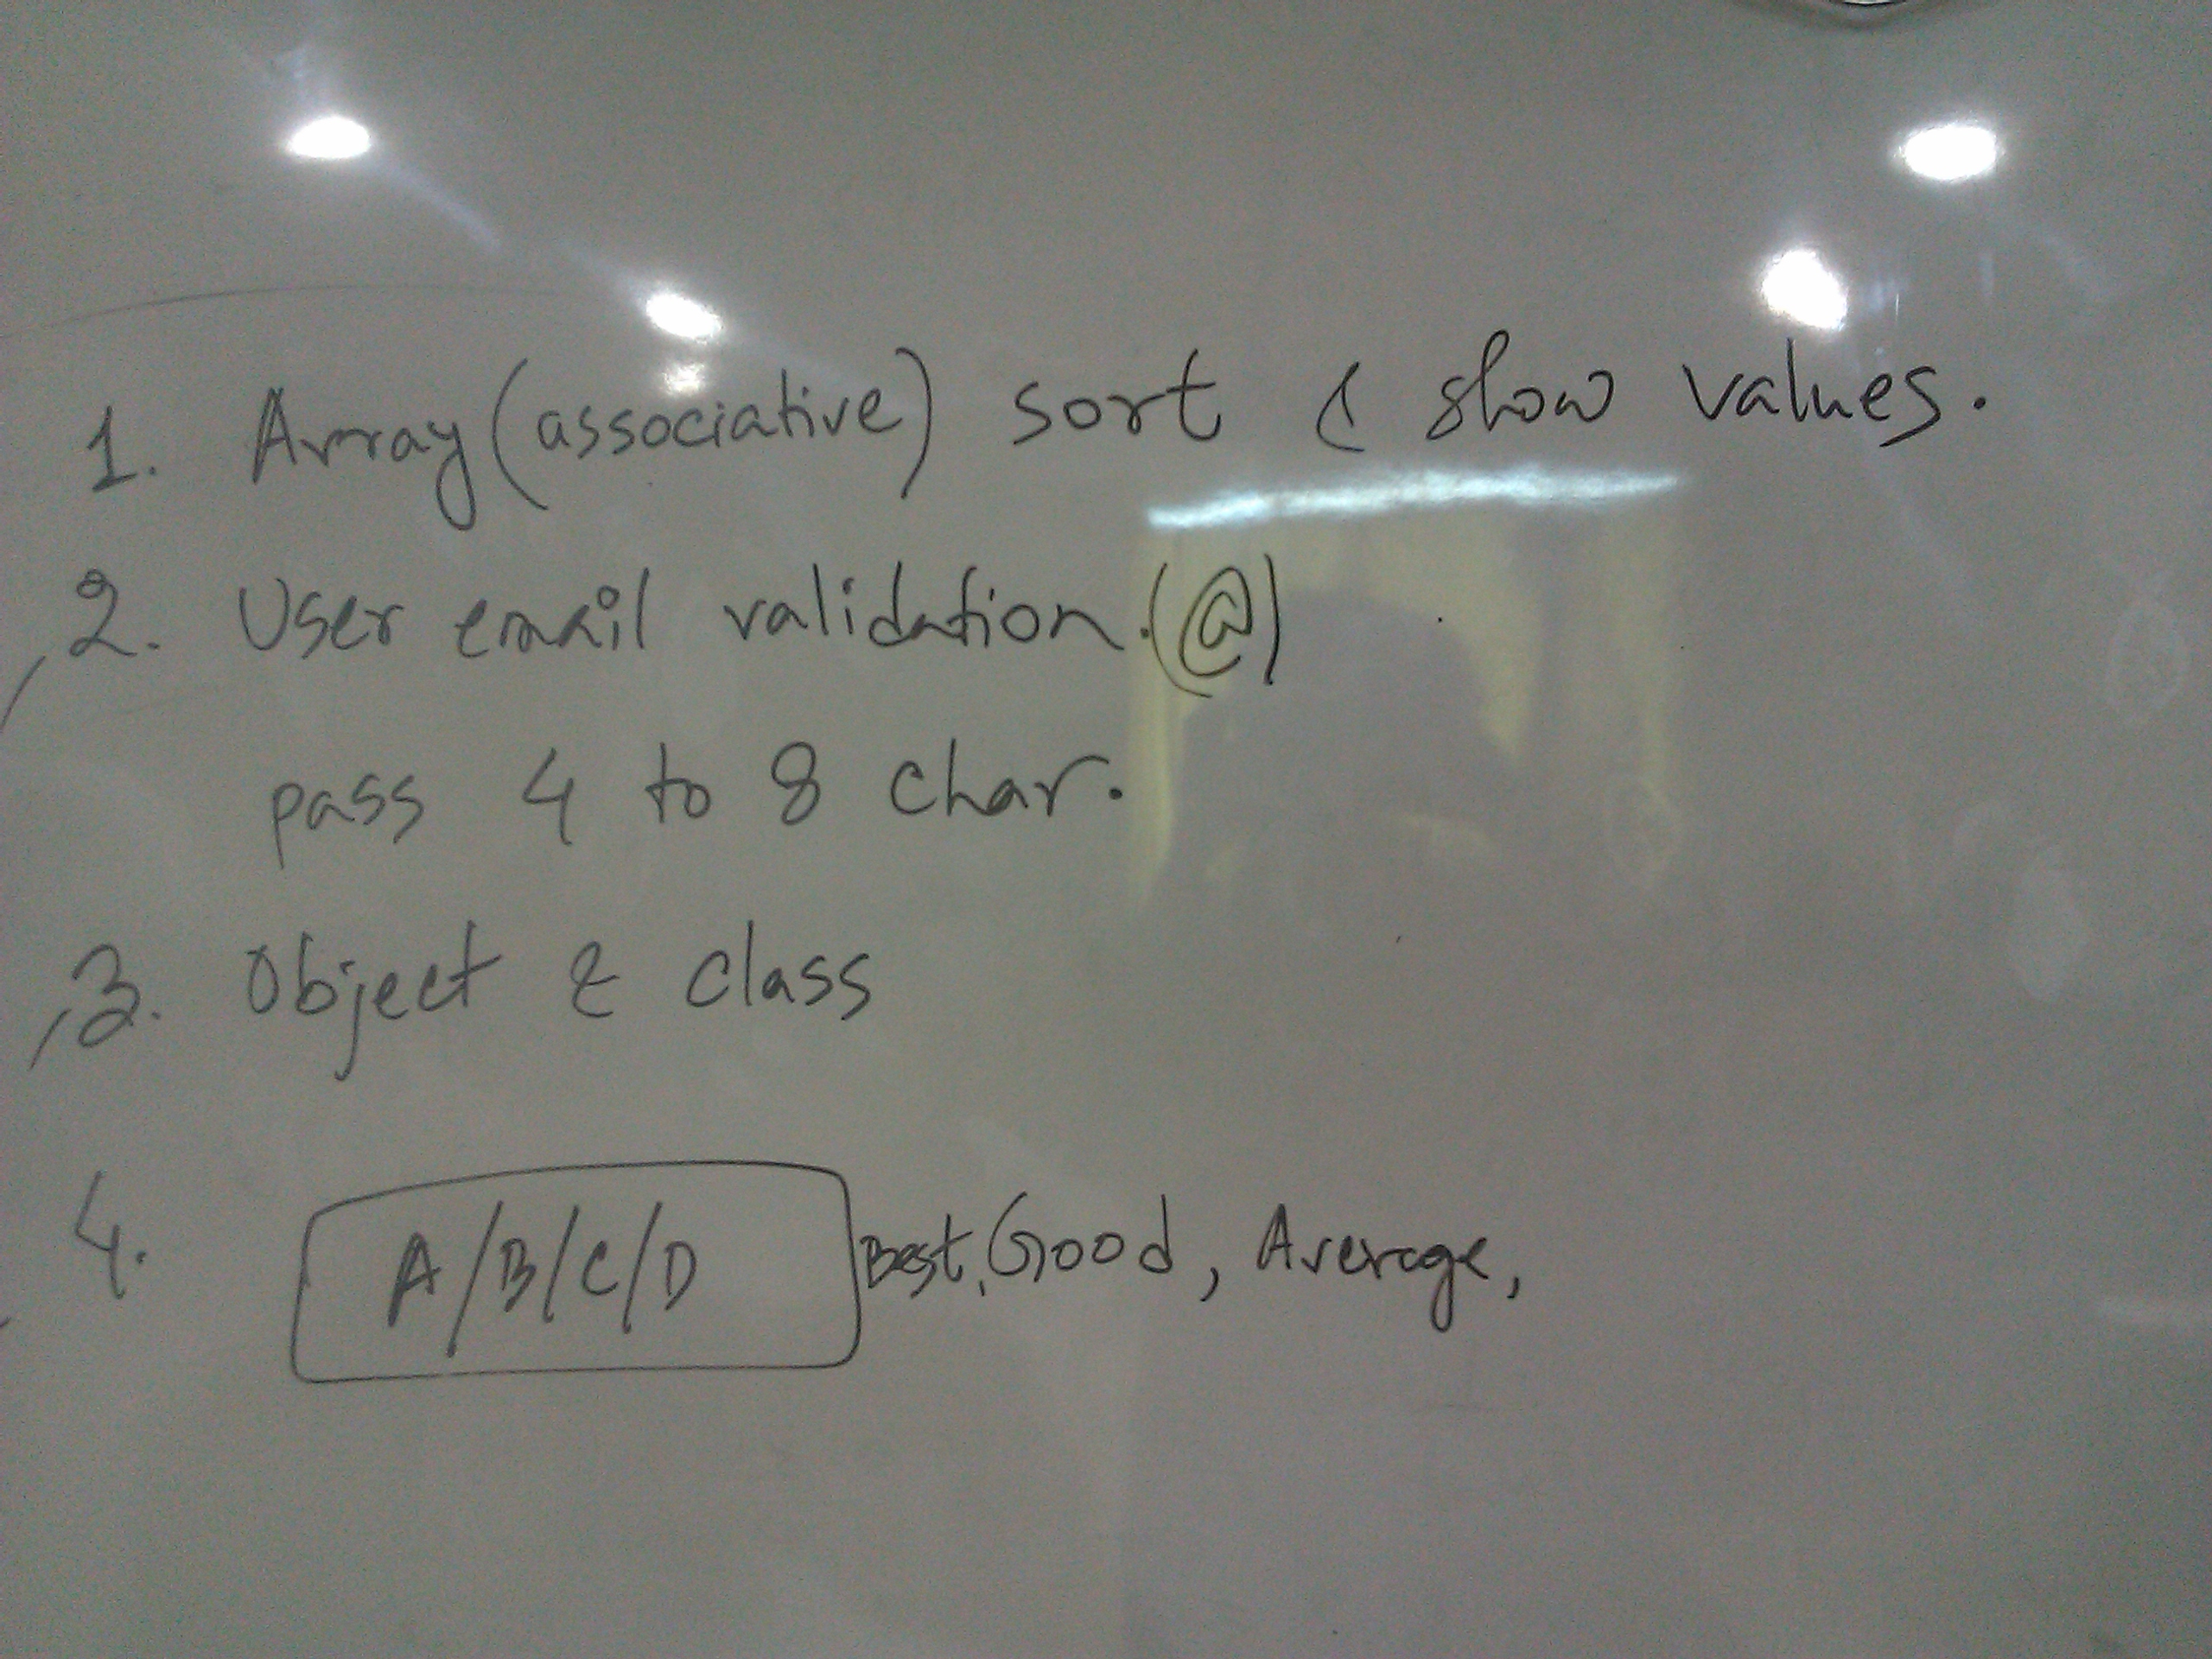 1. Array (associative) sort & show values.
2. User email validation. (@)
pass 4 to 8 char.
3. Object & class
4. A/B/C/D Best, Good, Average,